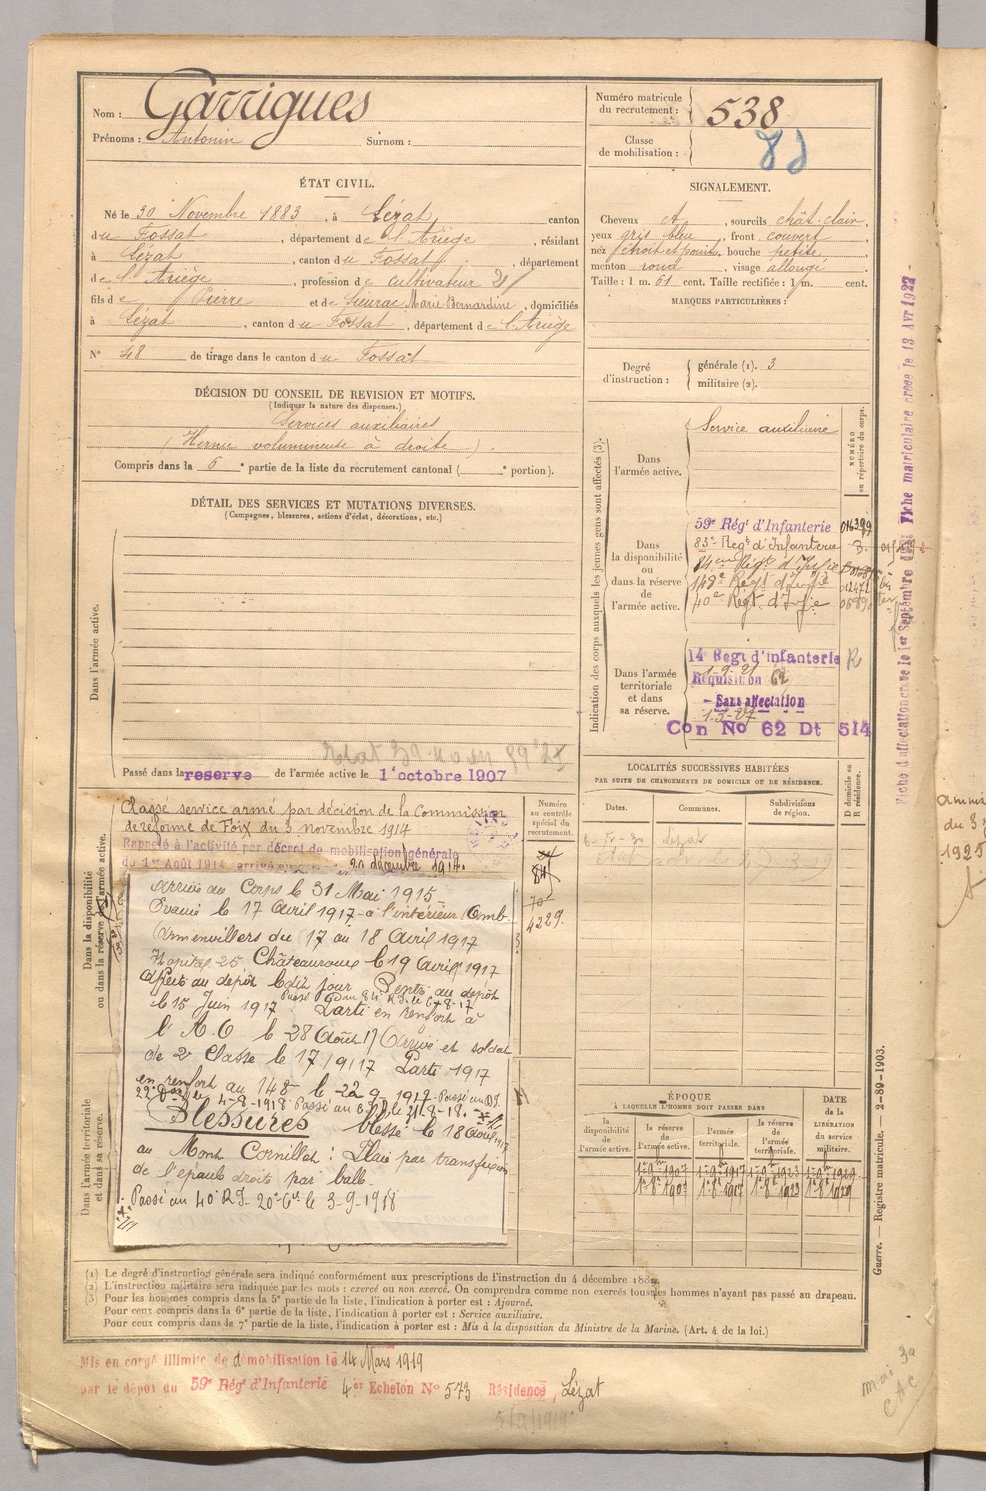 Nom : Garrigues
Prénoms : Antonin Surnom :
Numéro matricule du recrutement : 538
Classe de mobilisation :
ÉTAT CIVIL.
Né le 30 Novembre 1883, à Lézat canton
du Fossat, département de l'Ariège, résidant
à Lézat, canton du Fossat, département
de l'Ariège, profession de cultivateur
fils de Pierre et de Sieurac Marie Bernardine, domiciliés
à Lézat, canton du Fossat, département de l'Ariège
N° 48 de tirage dans le canton du Fossat
SIGNALEMENT.
Cheveux ct, sourcils chât-clair,
yeux gris bleu, front couvert,
nez étroit et pointu, bouche petite,
menton rond, visage allongé
Taille : 1 m. 61 cent. Taille rectifiée : 1 m. cent.
MARQUES PARTICULIÈRES :
Degré d'instruction : générale (1). 3
militaire (2).
DÉCISION DU CONSEIL DE REVISION ET MOTIFS.
(Indiquer la nature des dispenses.)
Services auxiliaires
(Hernie volumineuse à droite).
Compris dans la 6e partie de la liste du recrutement cantonal ( e portion).
DÉTAIL DES SERVICES ET MUTATIONS DIVERSES.
(Campagnes, blessures, actions d'éclat, décorations, etc.)
Dans l'armée active.
Passé dans la reserve de l'armée active le 1er octobre 1907
Indication des corps auxquels les jeunes gens sont affectés (3).
NUMÉRO au répertoire du corps.
Dans l'armée active.
Service auxiliaire
Dans la disponibilité ou dans la réserve de l'armée active.
59e Rég't d'Infanterie
83e Reg't d'Infanterie
84eme Régt d'Infie
148e Régt d'Infie
40e Régt d'Infie
Dans l'armée territoriale et dans sa réserve.
14 Regt d'infanterie R
1-9-21
Requisition 62
- Sans affectation
1-3-27
Con No 62 Dt 514
Fiche matriculaire créée le 13 Avr 1922
LOCALITÉS SUCCESSIVES HABITÉES
PAR SUITE DE CHANGEMENTS DE DOMICILE OU DE RÉSIDENCE.
Dates. Communes. Subdivisions de région. D domicile ou R résidence.
Lézat
Dans la disponibilité ou dans la réserve de l'armée active.
Numéro au contrôle spécial du recrutement.
4229.
Classé service armé par décision de la Commission
de réforme de Foix du 3 novembre 1914
Rappelé à l'activité par décret de mobilisation générale
du 1er Août 1914, arrivé au corps le 20 décembre 1914.
Arrivé au Corps le 31 Mai 1915
Evacué le 17 avril 1917 à l'intérieur Amb.
Armenvillers du 17 au 18 Avril 1917
Hopital 25 Châteauroux le 19 Avril 1917
Affecté au dépôt ledit jour Rentré au dépôt
Passé au 84 R.I. le 6-8-17
le 15 Juin 1917 Parti en renfort à
l'A.O le 28 Août 17 Arrivé et soldat
de 2e Classe le 17/9/17 Parti
en renfort au 148 le 22 9 1917
Blessures Blessé le 18 Avril 1917
au Mont Cornillet : Plaie par transfixion
de l'épaule droite par balle
Passé au 40e R.I. 20e Cie le 3-9-1918
Dans l'armée territoriale et dans sa réserve.
ÉPOQUE
À LAQUELLE L'HOMME DOIT PASSER DANS
la disponibilité de l'armée active. la réserve de l'armée active. l'armée territoriale. la réserve de l'armée territoriale. DATE de la LIBÉRATION du service militaire.
1er 8bre 1907 1er 8bre 1917 1er 8bre 1923 1er 8bre 1929
Guerre. — Registre matricule. — 2-89-1903.
(1) Le degré d'instruction générale sera indiqué conformément aux prescriptions de l'instruction du 4 décembre 1889.
(2) L'instruction militaire sera indiquée par les mots : exercé ou non exercé. On comprendra comme non exercés tous les hommes n'ayant pas passé au drapeau.
(3) Pour les hommes compris dans la 5e partie de la liste, l'indication à porter est : Ajourné.
Pour ceux compris dans la 6e partie de la liste, l'indication à porter est : Service auxiliaire.
Pour ceux compris dans la 7e partie de la liste, l'indication à porter est : Mis à la disposition du Ministre de la Marine. (Art. 4 de la loi.)
Mis en congé illimité de démobilisation le 14 Mars 1919
par le dépôt du 59e Rég't d'Infanterie 4er Echelon No 573 Résidence, Lézat
du 3
1925